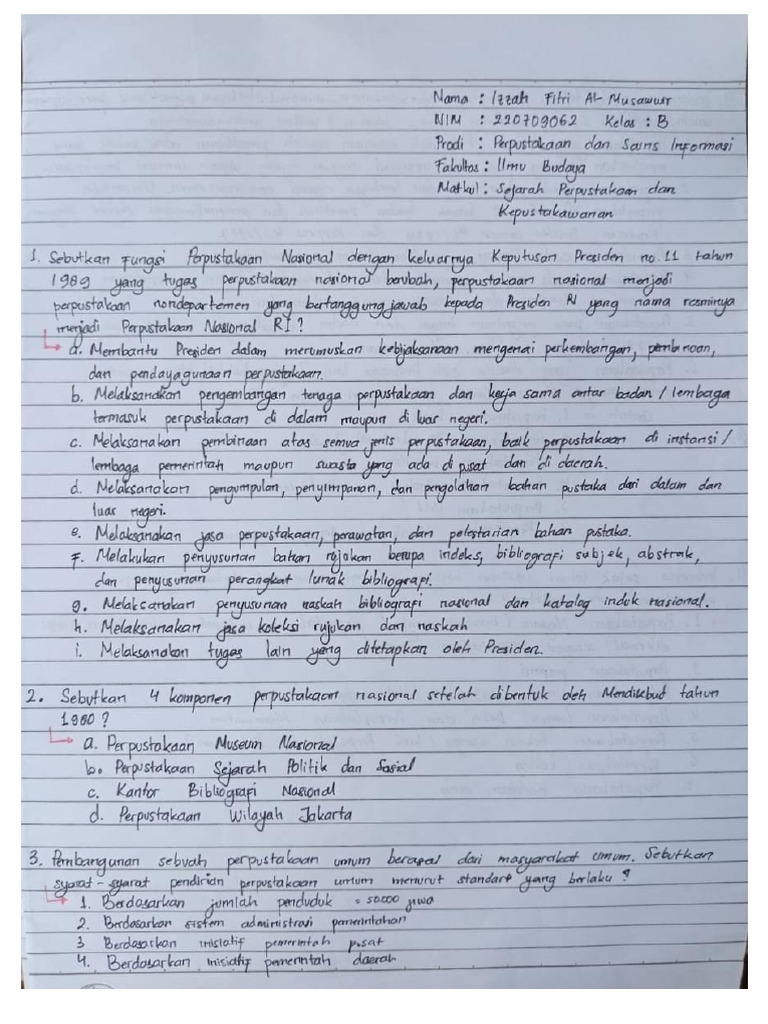 Nama : Izzah Fitri Al-Musawwir
NIM : 220709062 Kelas : B
Prodi : Perpustakaan dan Sains Informasi
Fakultas : Ilmu Budaya
Matkul : Sejarah Perpustakaan dan
Kepustakawanan
1. Sebutkan Fungsi Perpustakaan Nasional dengan keluarnya Keputusan Presiden no. 11 tahun
1989 yang tugas perpustakaan nasional berubah, perpustakaan nasional menjadi
perpustakaan nondepartemen yang bertanggungjawab kepada Presiden RI yang nama resminya
menjadi Perpustakaan Nasional RI ?
a. Membantu Presiden dalam merumuskan kebijaksanaan mengenai perkembangan, pembinaan,
dan pendayagunaan perpustakaan.
b. Melaksanakan pengembangan tenaga perpustakaan dan kerja sama antar badan / lembaga
termasuk perpustakaan di dalam maupun di luar negeri.
c. Melaksanakan pembinaan atas semua jenis perpustakaan, baik perpustakaan di instansi /
lembaga pemerintah maupun swasta yang ada di pusat dan di daerah.
d. Melaksanakan pengumpulan, penyimpanan, dan pengolahan bahan pustaka dari dalam dan
luar negeri.
e. Melaksanakan jasa perpustakaan, perawatan, dan pelestarian bahan pustaka.
f. Melakukan penyusunan bahan rujukan berupa indeks, bibliografi subjek, abstrak,
dan penyusunan perangkat lunak bibliografi.
g. Melaksanakan penyusunan naskah bibliografi nasional dan katalog induk nasional.
h. Melaksanakan jasa koleksi rujukan dan naskah
i. Melaksanakan tugas lain yang ditetapkan oleh Presiden.
2. Sebutkan 4 komponen perpustakaan nasional setelah dibentuk oleh Mendikbud tahun
1980 ?
a. Perpustakaan Museum Nasional
b. Perpustakaan Sejarah Politik dan Sosial
c. Kantor Bibliografi Nasional
d. Perpustakaan Wilayah Jakarta
3. Pembangunan sebuah perpustakaan umum berasal dari masyarakat umum. Sebutkan
syarat-syarat pendirian perpustakaan umum menurut standart yang berlaku ?
1. Berdasarkan jumlah penduduk = 50.000 jiwa
2. Berdasarkan sistem administrasi pemerintahan
3 Berdasarkan inisiatif pemerintah pusat
4. Berdasarkan inisiatif pemerintah daerah